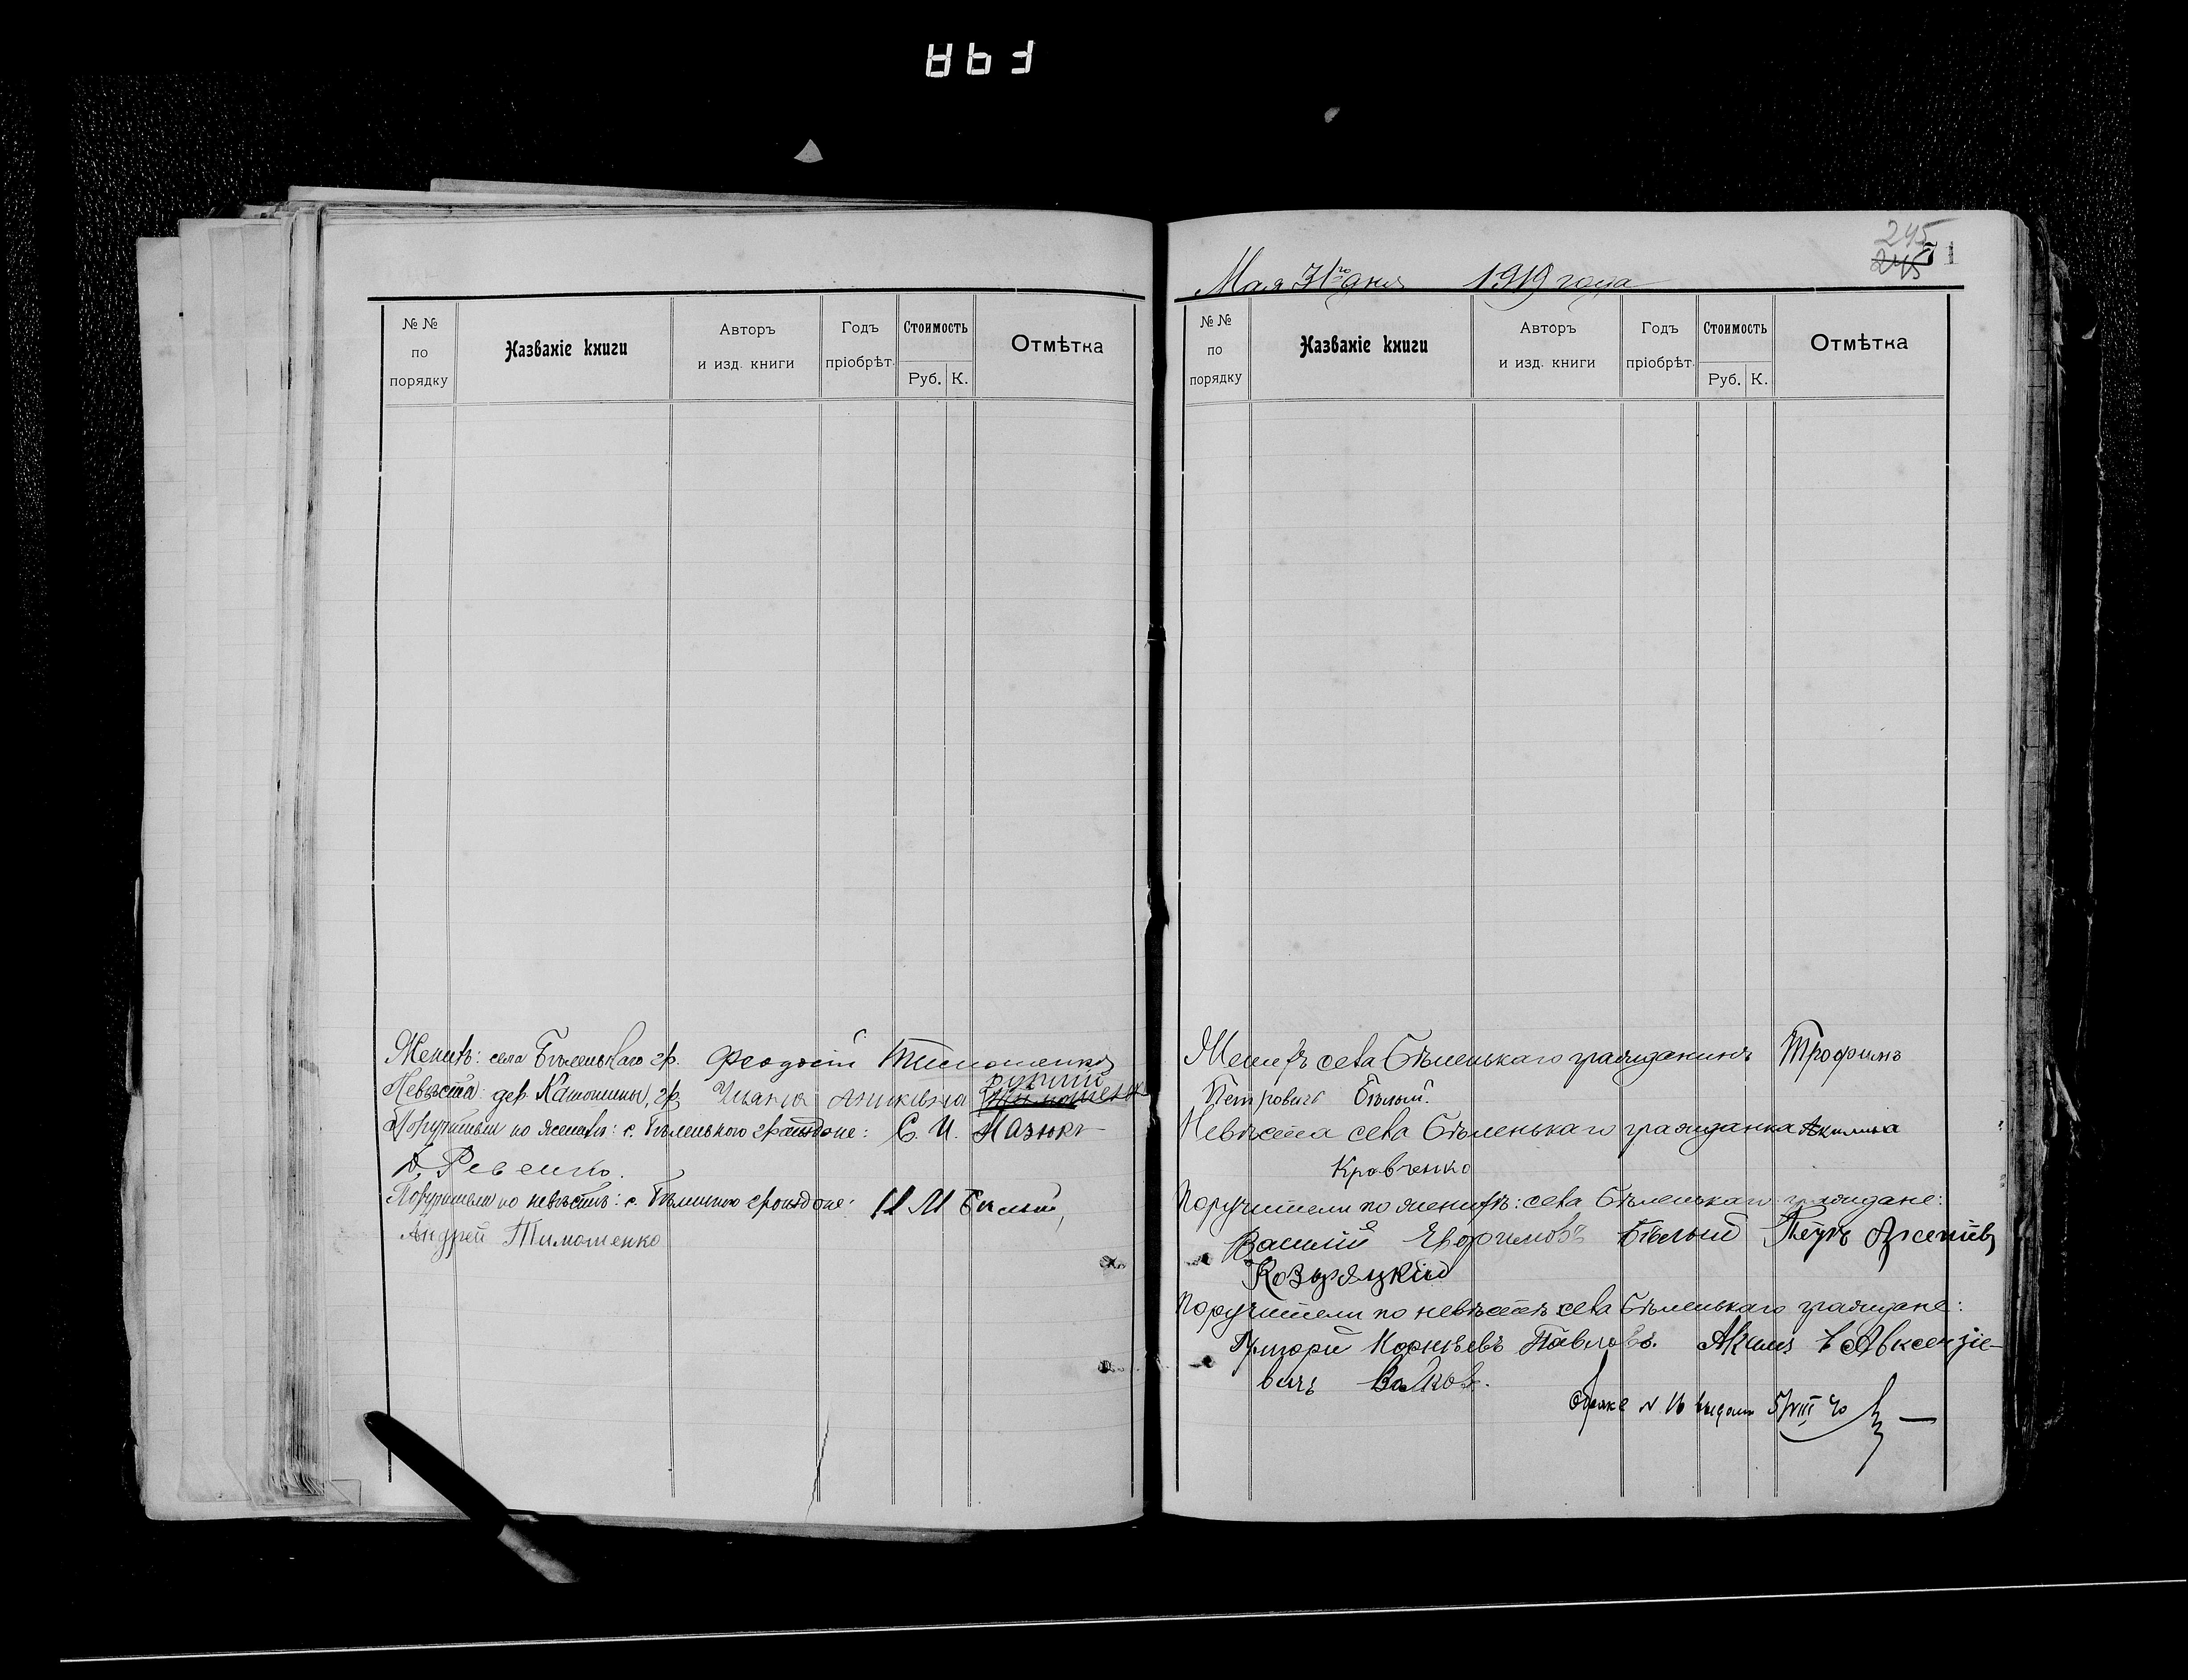 245
245
Мая 31го дня 1919 года
№ № по порядку
Названіе книги
Авторъ и изд. книги
Годъ пріобрѣт.
Стоимость
Руб. К.
Отмѣтка
Женихъ: села Бѣленькаго гр. Феодосій Тимошенко
Невѣста: дер. гр.
Поручители по женихѣ: с. Бѣленького граждане: С. И. Мазюкъ
Ревенко.
Поручители по невѣстѣ: с. граждане: И М Бѣлый,
Андрей Тимошенко
№ № по порядку
Названіе книги
Авторъ и изд. книги
Годъ пріобрѣт.
Стоимость
Руб. К.
Отмѣтка
Женихъ села Бѣленькаго гражданинъ Трофимъ
Петровичъ Бѣлый.
Невѣста села Бѣленькаго гражданка Акилина
Кравченко
Поручители по женихѣ: села Бѣленькаго граждане:
Василій Ефимовъ Бѣлый Петръ Арсеніевъ
Козыряцкій
Поручители по невѣстѣ села Бѣленькаго граждане:
Григорій Корнѣевъ Павловъ. Акимъ Авксентіе-
вичъ Волковъ.
о браке N 16 выдан 5/VIII 40